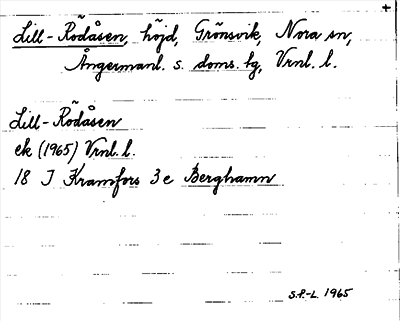 +
Lill-Rödåsen, höjd, Grönsvik, Nora sn,
Ångermanl. s. doms. hg, Vrnl. l.
Lill-Rödåsen
ek (1965) Vrnl. l.
18 I Kramfors 3 e Berghamn
S.P.-L. 1965